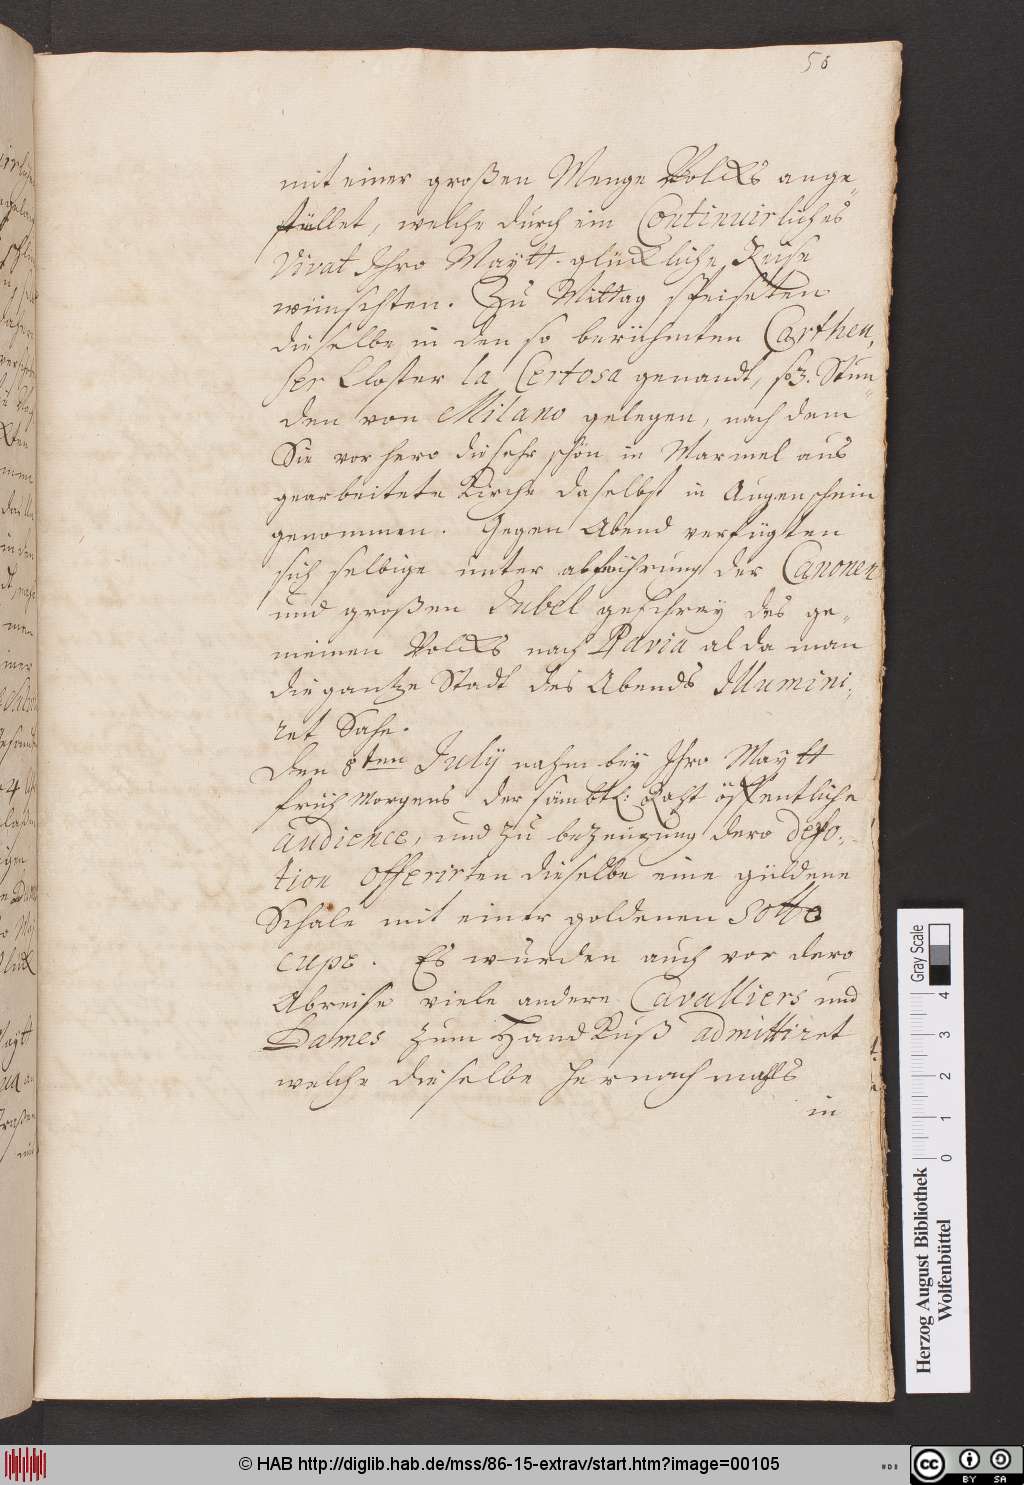 50
mit einer großen Menge Volcks ange-
füllet, welche durch ein Continuirliches
Vivat Ihro Maytt. glückliche Reise
wünschten. Zu Mittag speiseten
dieselbe in den so berühmten Cartheu,
ser Closter la Certosa genandt, so 3. Stun-
den von Milano gelegen, nach dem
Sie vorhero die sehr schön in Marmel aus
gearbeitete Kirche daselbst in Augenschein
genommen. Gegen Abend verfügten
sich selbige unter abführung der Canonen
und großen Jubel geschrey des ge-
meinen Volcks nach Pavia alda man
die gantze Stadt des Abends Illumini-
ret Sahe.
Den 8ten July nahm bey Ihro Maytt
früh Morgens der sämbtl: Raht öffentliche
audience, und zu bezeugung dero Devo-
tion offerirten dieselbe eine güldene
Schale mit einer goldenen Sotto
cupe. Es wurden auch vor dero
Abreise viele andere Cavalliers und
Dames zum Hand Kuß admittiret
welche dieselbe hernachmahls
in
Herzog August Bibliothek
Wolfenbüttel
Gray Scale
0 1 2 3 4
© HAB http://diglib.hab.de/mss/86-15-extrav/start.htm?image=00105
CC BY SA